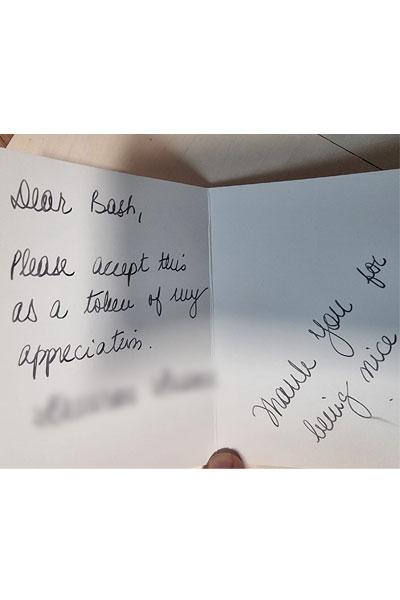 Dear Bash,
Please accept this
as a token of my
appreciation.
Thank you for
being nice.